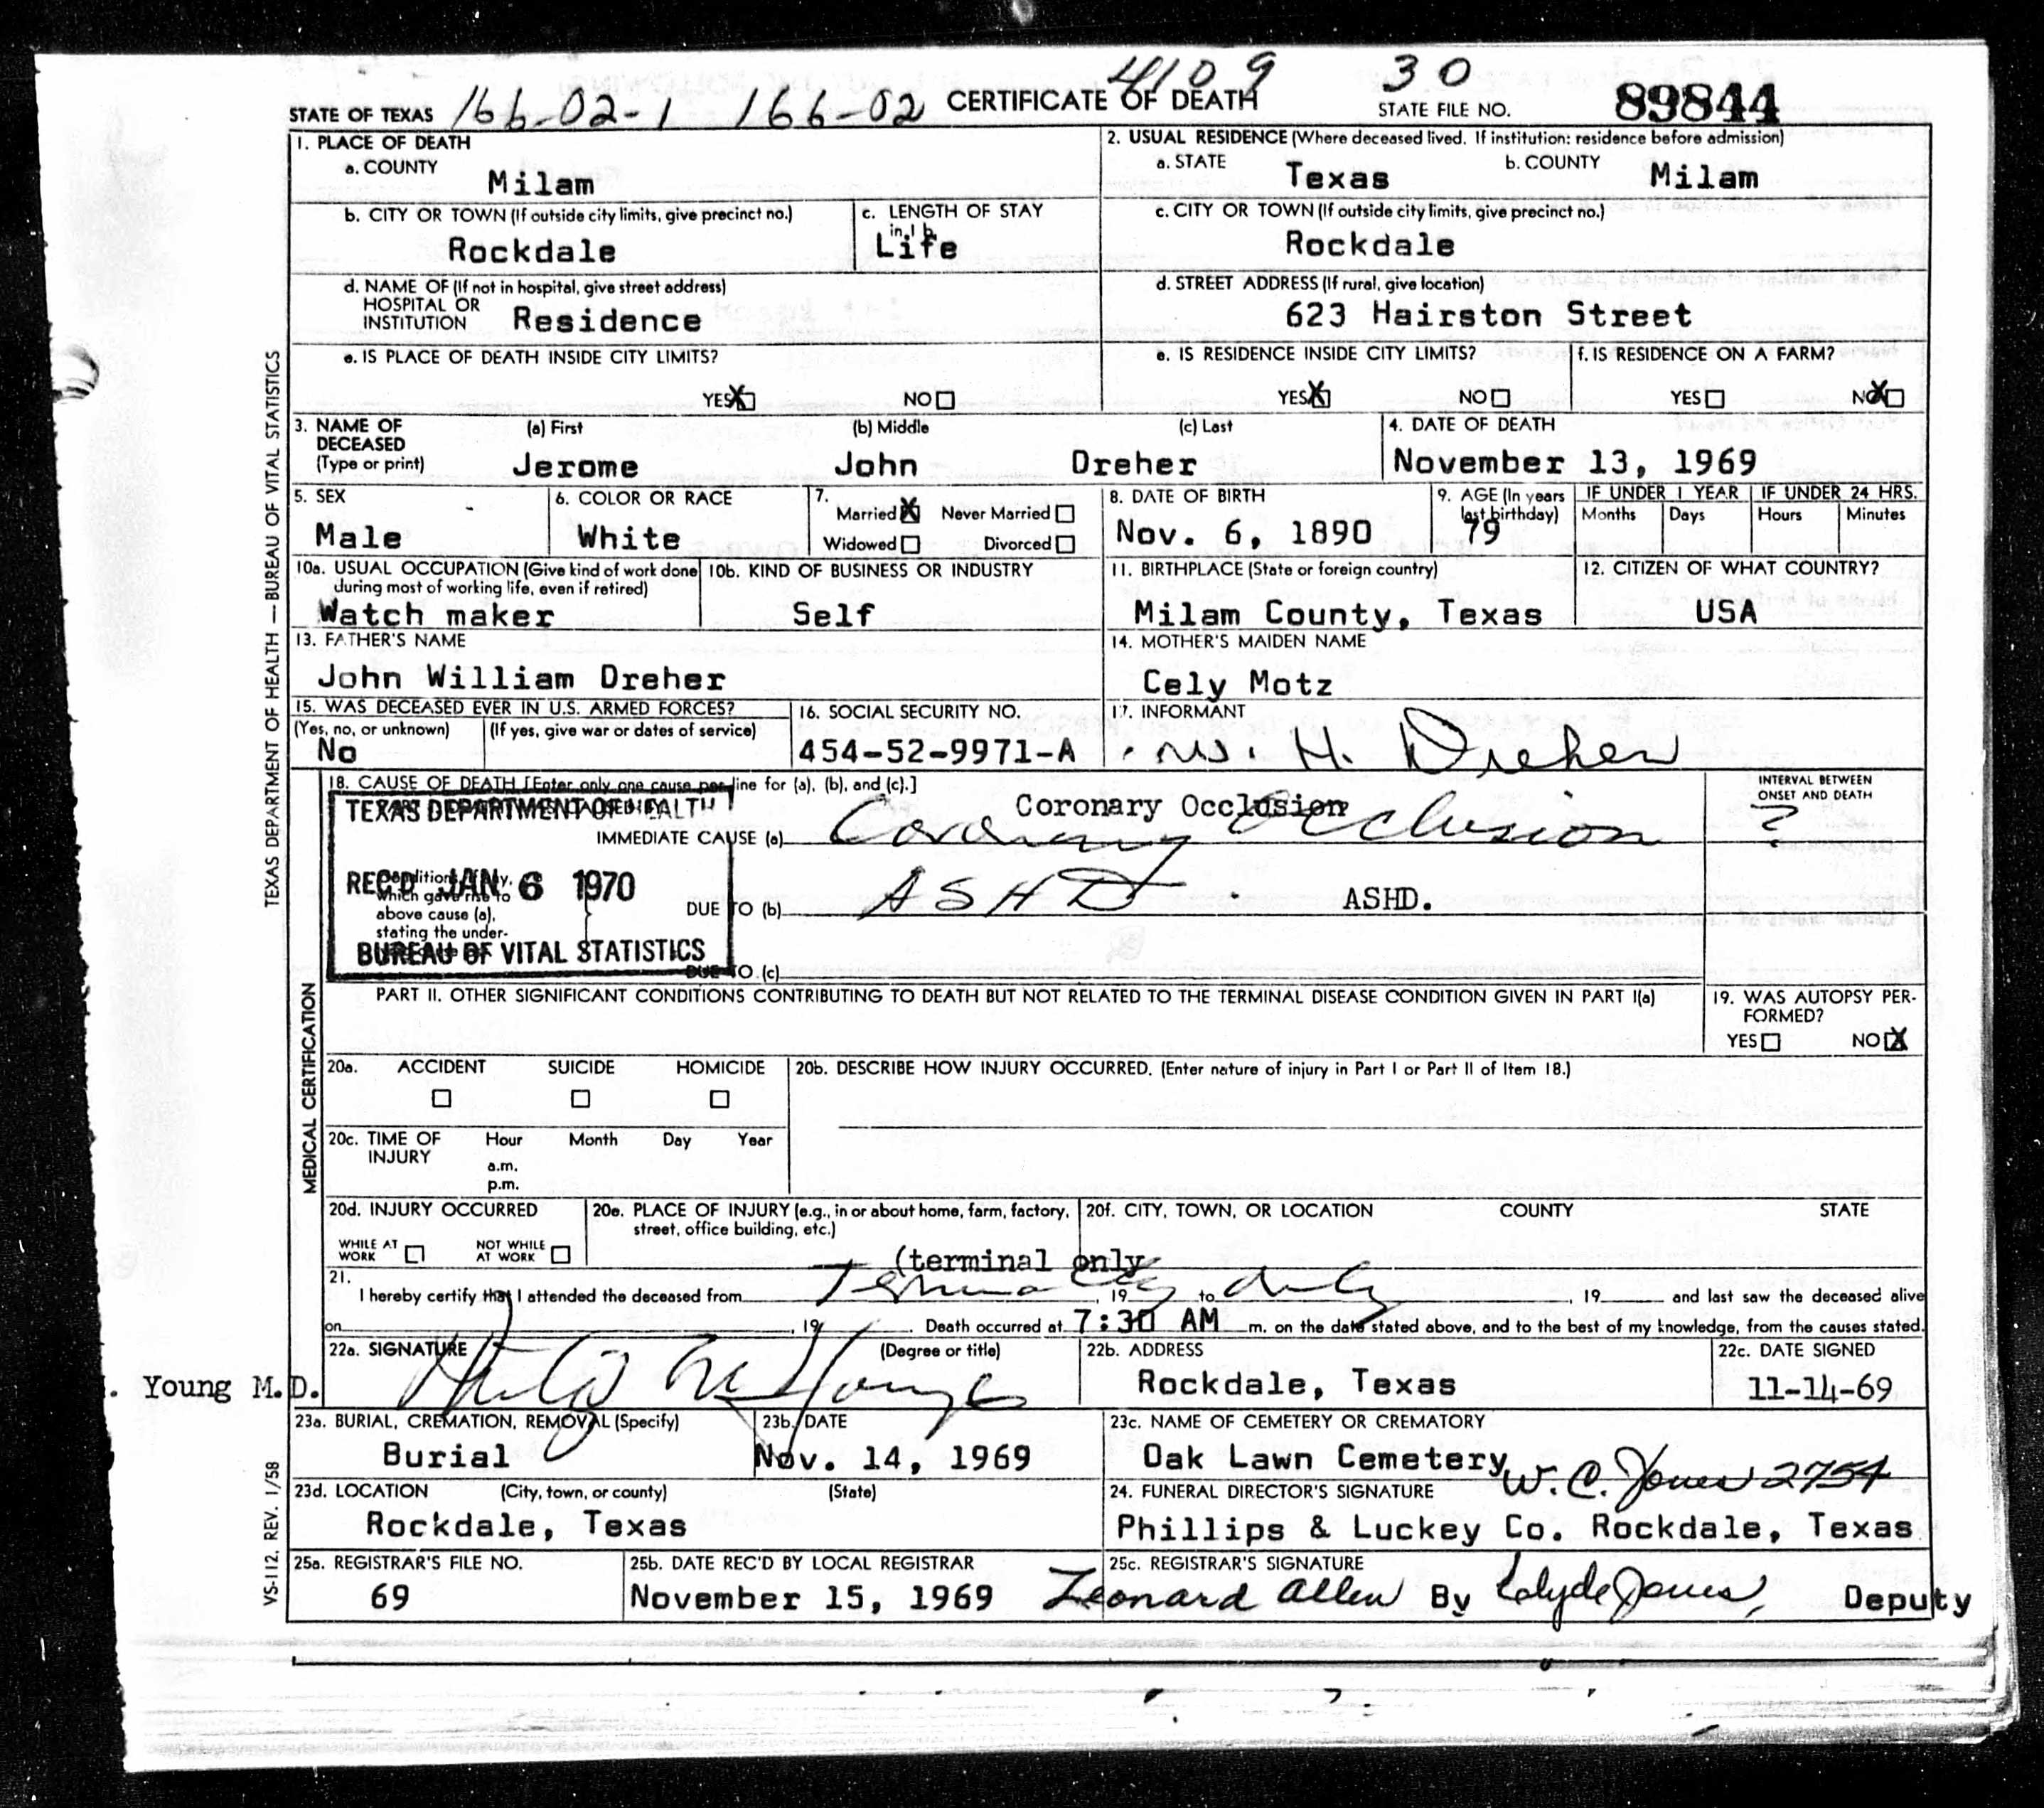 4109 30
STATE OF TEXAS 166-02-1 166-02 CERTIFICATE OF DEATH STATE FILE NO. 89844
1. PLACE OF DEATH
a. COUNTY Milam
2. USUAL RESIDENCE (Where deceased lived. If institution: residence before admission)
a. STATE Texas b. COUNTY Milam
b. CITY OR TOWN (If outside city limits, give precinct no.) Rockdale
c. LENGTH OF STAY in 1 b. Life
c. CITY OR TOWN (If outside city limits, give precinct no.) Rockdale
d. NAME OF (If not in hospital, give street address)
HOSPITAL OR
INSTITUTION Residence
d. STREET ADDRESS (If rural, give location)
623 Hairston Street
e. IS PLACE OF DEATH INSIDE CITY LIMITS?
YES X NO
e. IS RESIDENCE INSIDE CITY LIMITS?
YES X NO
f. IS RESIDENCE ON A FARM?
YES NO X
3. NAME OF DECEASED (Type or print)
(a) First (b) Middle (c) Last
Jerome John Dreher
4. DATE OF DEATH
November 13, 1969
5. SEX
Male
6. COLOR OR RACE
White
7. Married X Never Married
Widowed Divorced
8. DATE OF BIRTH
Nov. 6, 1890
9. AGE (In years last birthday)
79
IF UNDER 1 YEAR IF UNDER 24 HRS.
Months Days Hours Minutes
10a. USUAL OCCUPATION (Give kind of work done during most of working life, even if retired)
Watch maker
10b. KIND OF BUSINESS OR INDUSTRY
Self
11. BIRTHPLACE (State or foreign country)
Milam County, Texas
12. CITIZEN OF WHAT COUNTRY?
USA
13. FATHER'S NAME
John William Dreher
14. MOTHER'S MAIDEN NAME
Cely Motz
15. WAS DECEASED EVER IN U.S. ARMED FORCES?
(Yes, no, or unknown) (If yes, give war or dates of service)
No
16. SOCIAL SECURITY NO.
454-52-9971-A
17. INFORMANT
W. H. Dreher
18. CAUSE OF DEATH [Enter only one cause per line for (a), (b), and (c).]
TEXAS DEPARTMENT OF HEALTH
REC'D JAN 6 1970
BUREAU OF VITAL STATISTICS
Coronary Occlusion
IMMEDIATE CAUSE (a) Coronary Occlusion
Conditions, if any,
which gave rise to
above cause (a),
stating the under-
DUE TO (b) ASHD ASHD.
DUE TO (c)
INTERVAL BETWEEN
ONSET AND DEATH
?
PART II. OTHER SIGNIFICANT CONDITIONS CONTRIBUTING TO DEATH BUT NOT RELATED TO THE TERMINAL DISEASE CONDITION GIVEN IN PART I(a)
19. WAS AUTOPSY PER-
FORMED?
YES NO X
20a. ACCIDENT SUICIDE HOMICIDE
20b. DESCRIBE HOW INJURY OCCURRED. (Enter nature of injury in Part I or Part II of Item 18.)
20c. TIME OF INJURY Hour Month Day Year
a.m.
p.m.
20d. INJURY OCCURRED
WHILE AT WORK NOT WHILE AT WORK
20e. PLACE OF INJURY (e.g., in or about home, farm, factory, street, office building, etc.)
20f. CITY, TOWN, OR LOCATION COUNTY STATE
(terminal only
21.
I hereby certify that I attended the deceased from Terminally, 19 to only, 19 and last saw the deceased alive
on , 19 . Death occurred at 7:30 AM m. on the date stated above, and to the best of my knowledge, from the causes stated.
22a. SIGNATURE (Degree or title)
. Young M.D.
22b. ADDRESS
Rockdale, Texas
22c. DATE SIGNED
11-14-69
23a. BURIAL, CREMATION, REMOVAL (Specify)
Burial
23b. DATE
Nov. 14, 1969
23c. NAME OF CEMETERY OR CREMATORY
Oak Lawn Cemetery
23d. LOCATION (City, town, or county) (State)
Rockdale, Texas
24. FUNERAL DIRECTOR'S SIGNATURE W. C. Jones 2754
Phillips & Luckey Co. Rockdale, Texas
25a. REGISTRAR'S FILE NO.
69
25b. DATE REC'D BY LOCAL REGISTRAR
November 15, 1969
25c. REGISTRAR'S SIGNATURE
Leonard Allen By Clyde Jones, Deputy
TEXAS DEPARTMENT OF HEALTH — BUREAU OF VITAL STATISTICS
MEDICAL CERTIFICATION
VS-112, REV. 1/58